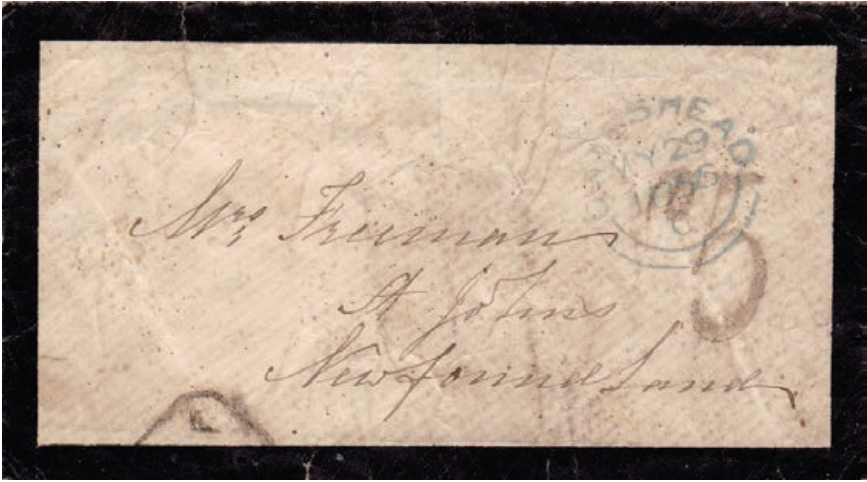 SHEAD
MY 29
Mrs Freeman
St Johns
Newfound Land